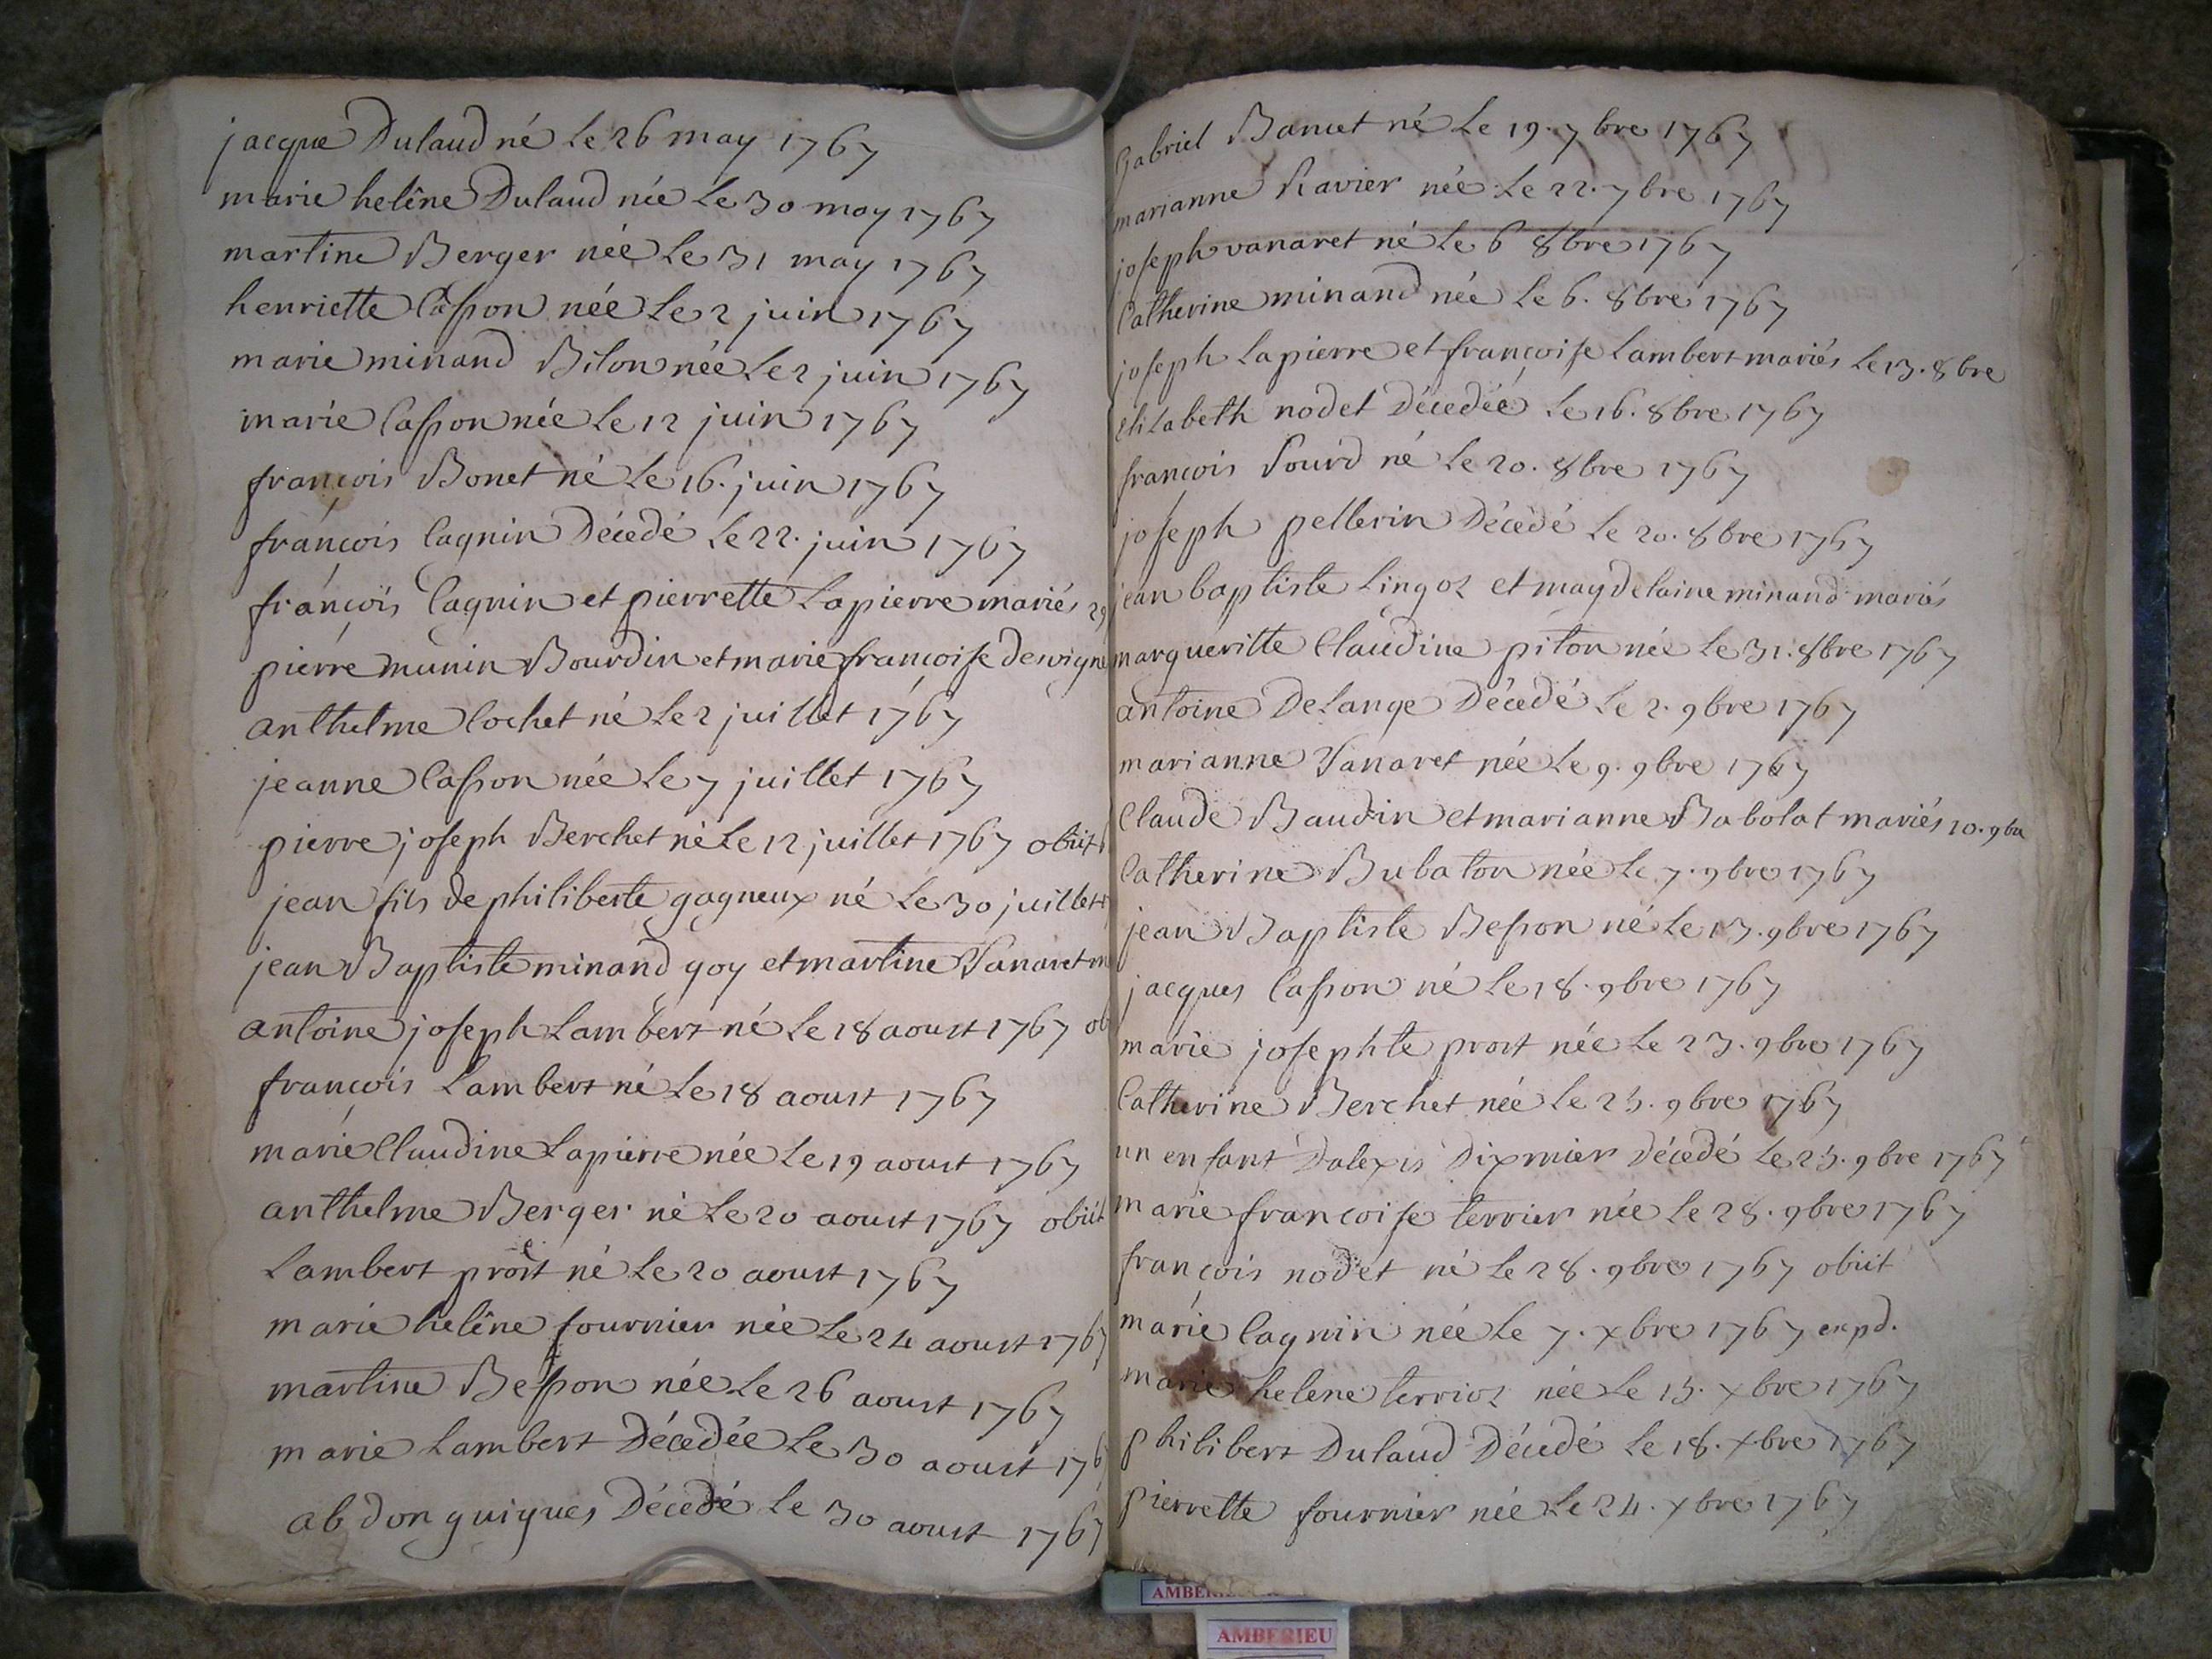 jacque Dulaud né Le 26 may 1767
marie helêne Dulaud née Le 30 may 1767
martine Berger née Le 31 may 1767
henriette Casson née Le 2 juin 1767
marie minand Bilon née Le 2 juin 1767
marie Casson née Le 12 juin 1767
françois Bonet né Le 16. juin 1767
françois Cagnin Décedé Le 22. juin 1767
françois Cagnin et pierrette Lapierre mariés 29
pierre munin Bourdin et marie françoise desvigne
anthelme Cochet né Le 2 juillet 1767
jeanne Casson née Le 7 juillet 1767
pierre joseph Berchet né Le 12 juillet 1767 obiit
jean fils de philiberte gagneux né Le 30 juillet
jean Baptiste minand goy et martine Vanaret m
antoine joseph Lambert né Le 18 aoust 1767 ob
françois Lambert né Le 18 aoust 1767
marie Claudine Lapierre née Le 19 aoust 1767
anthelme Berger né Le 20 aoust 1767 obiit
Lambert prost né Le 20 aoust 1767
marie helêne fournier née Le 24 aoust 1767
martine Besson née Le 26 aoust 1767
marie Lambert Décedée Le 30 aoust 176
abdon guigues Décedé Le 30 aoust 1767
Gabriel Bancet né Le 19. 7bre 1767
marianne Ravier née Le 22. 7bre 1767
joseph vanaret né Le 6 8bre 1767
Catherine minand née Le 6. 8bre 1767
joseph Lapierre et françoise Lambert mariés Le 13. 8bre
elizabeth nodet Décedée Le 16. 8bre 1767
françois Sourd né Le 20. 8bre 1767
joseph pellerin Décedé Le 20. 8bre 1767
jean baptiste Lingoz et maydelaine minand mariés
margueritte Claudine piton née Le 31. 8bre 1767
antoine DeLange Décedé Le 2. 9bre 1767
marianne Vanaret née Le 9. 9bre 1767
Claude Baudin et marianne Babolat mariés 10. 9bre
Catherine Bubaton née Le 7. 9bre 1767
jean Baptiste Besson né Le 13. 9bre 1767
jacques Casson né Le 18. 9bre 1767
marie josephte prost née Le 23. 9bre 1767
Catherine Berchet née Le 25. 9bre 1767
un enfant Dalexis Dixmier Décedé Le 25. 9bre 1767
marie françoise terrier née Le 28. 9bre 1767
françois nodet né Le 28. 9bre 1767 obiit
marie Cagnin née Le 7. xbre 1767 expd.
marie helene terrioz née Le 15. xbre 1767
philibert Dulaud Décedé Le 18. xbre 1767
pierrette fournier née Le 24. xbre 1767
AMBERIEU